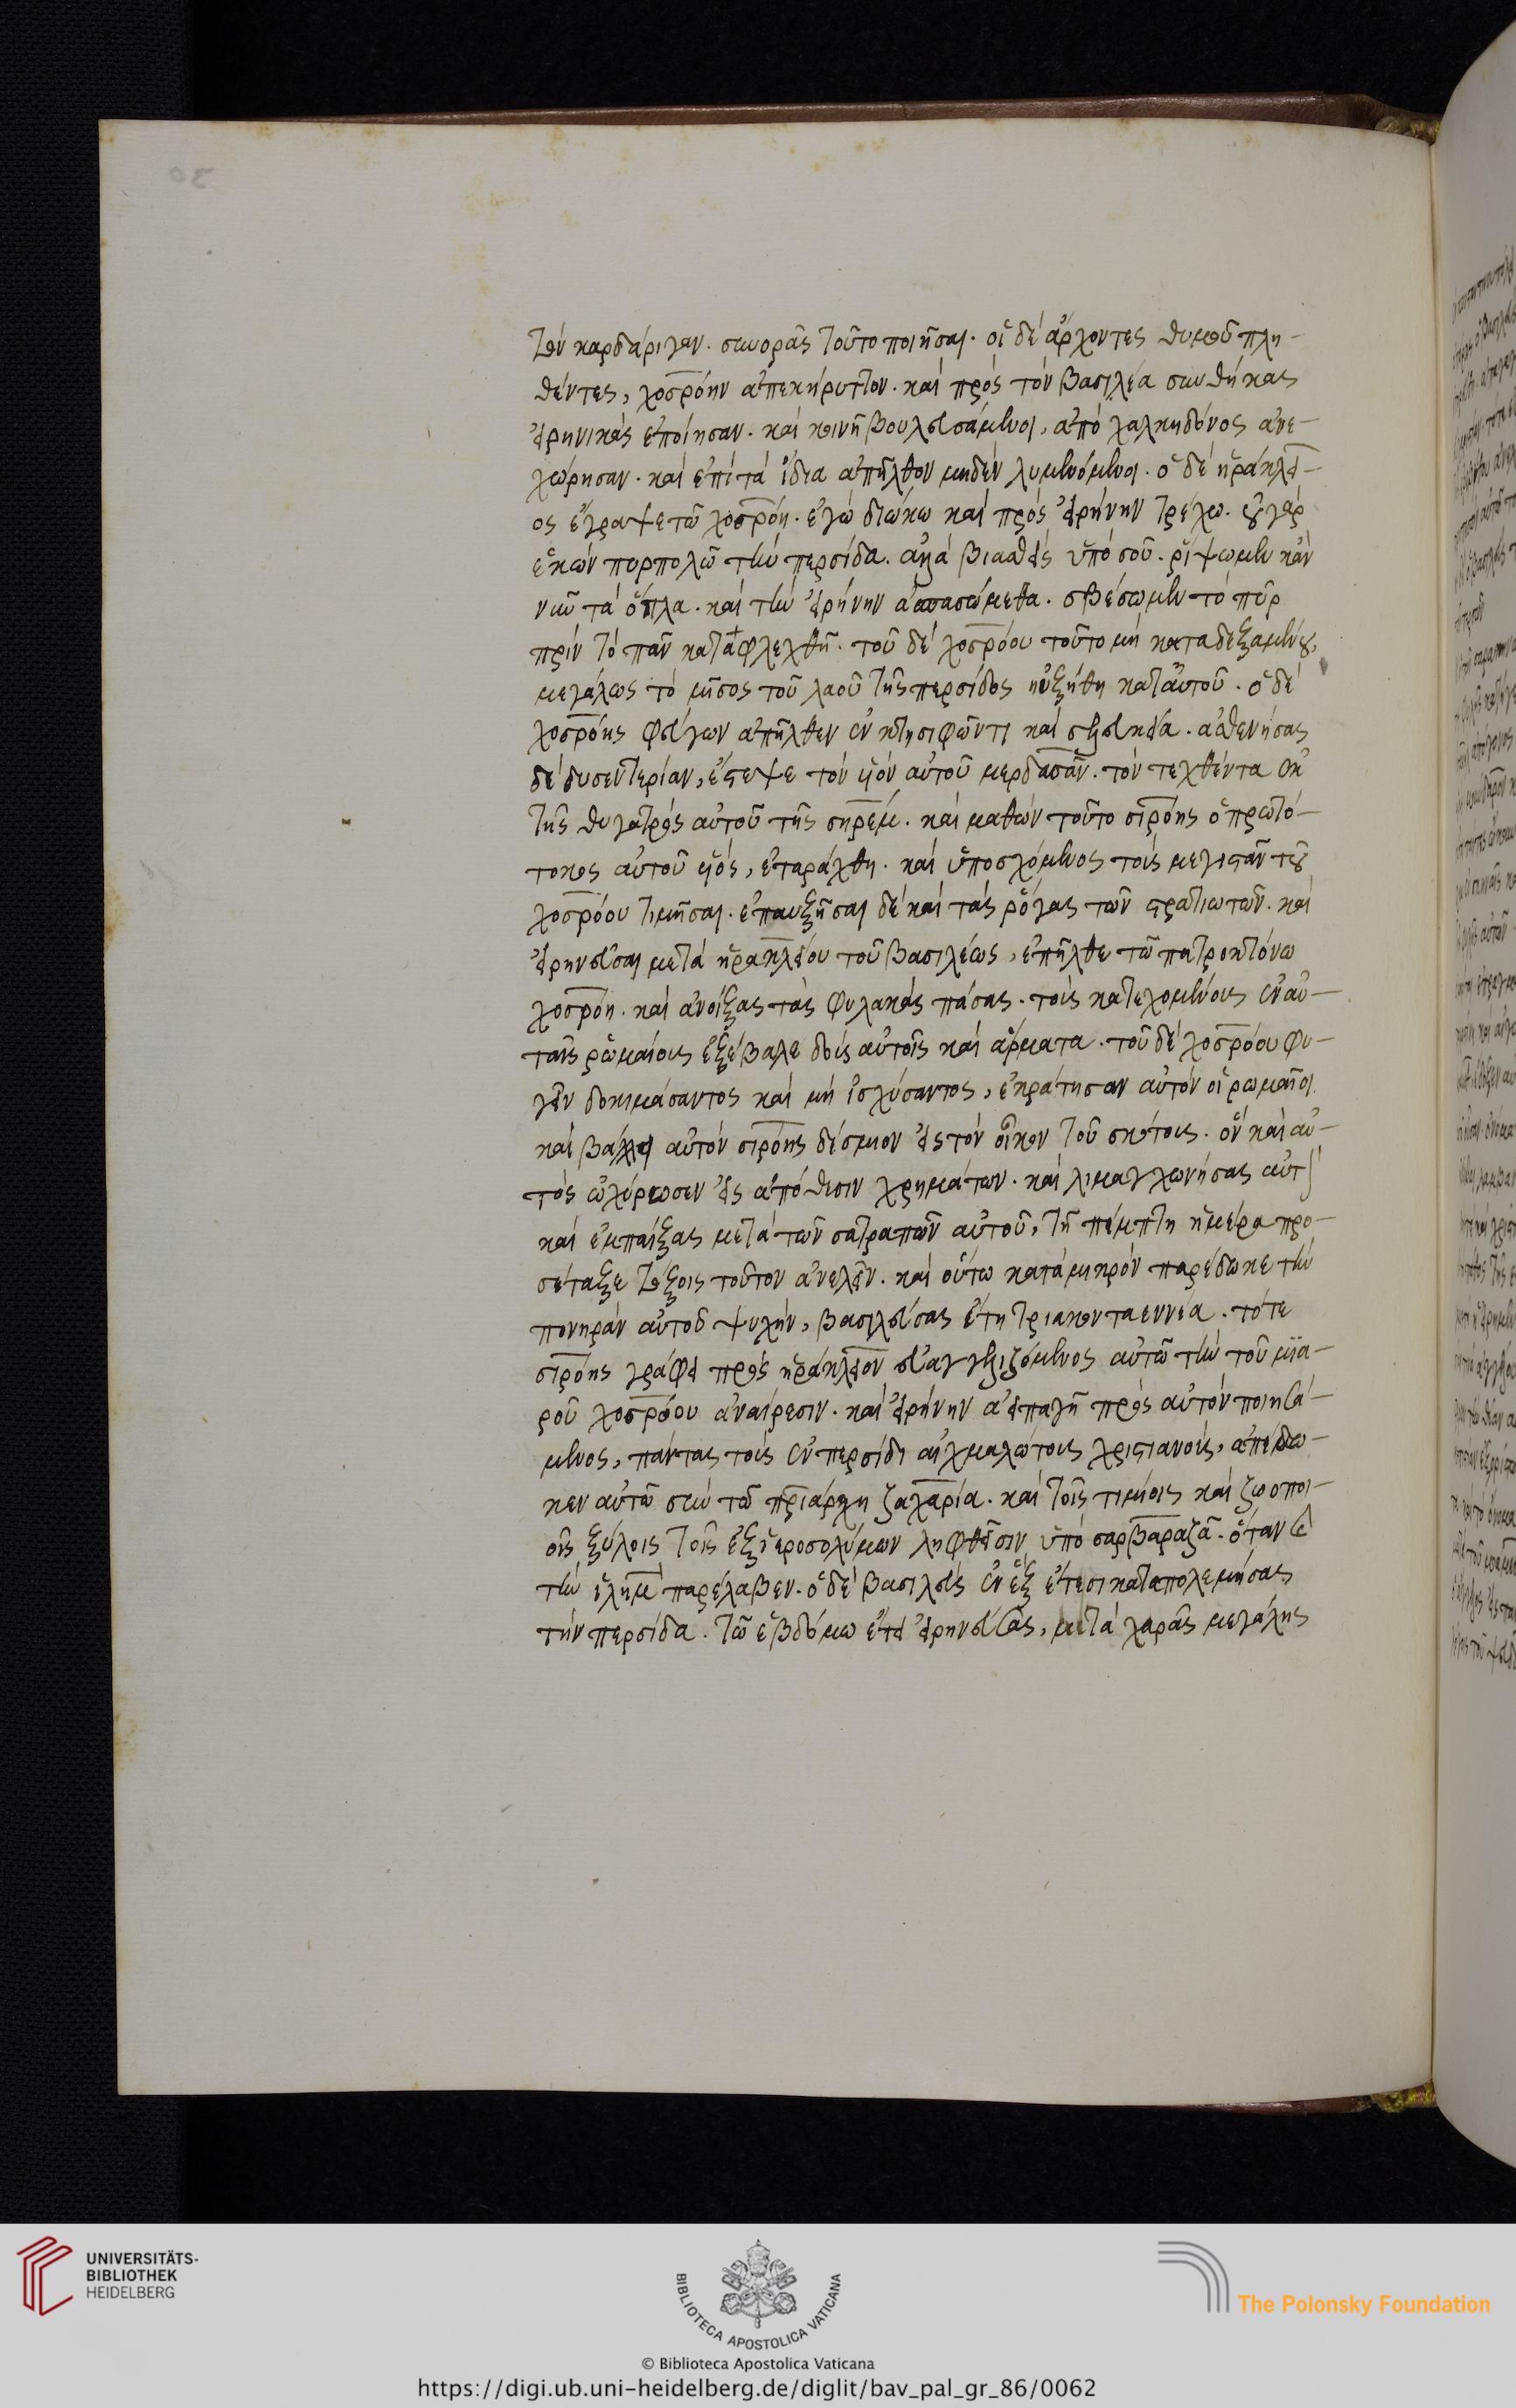 τὸν καρδάριγαν. συνορᾶς τοῦτο ποιῆσαι. οἱ δὲ ἄρχοντες θυμοῦ πλη-
θέντες, χοσρόην ἀπεκήρυττον. καὶ πρὸς τὸν βασιλέα συνθήκας
εἰρηνικὰς ἐποίησαν. καὶ κοινῇ βουλευσάμενοι, ἀπὸ χαλκηδόνος ἀνε-
χώρησαν. καὶ ἐπὶ τὰ ἴδια ἀπῆλθον μηδὲν λυμενόμενοι. ὁ δὲ ἡράκλει-
ος ἔγραψε τῶ χοσρόη. ἐγὼ διώκω καὶ πρὸς εἰρήνην τρέχω. οὐ γὰρ
ἑκὼν πυρπολῶ τὴν περσίδα. ἀλλὰ βιασθεὶς ὑπὸ σοῦ. ῥίψωμεν κἂν
νῦν τὰ ὅπλα. καὶ τὴν εἰρήνην ἀσπασώμεθα. σβέσωμεν τὸ πῦρ
πρὶν τὸ πᾶν καταφλεχθῆ. τοῦ δὲ χοσρόου τοῦτο μὴ καταδεξαμένου,
μεγάλως τὸ μῖσος τοῦ λαοῦ τῆς περσίδος ηὐξήθη κατ' αὐτοῦ. ὁ δὲ
χοσρόης φεύγων ἀπῆλθεν ἐν κτησιφῶντι καὶ σελευκεία. ἀσθενήσας
δὲ δυσεντερίαν, ἔστεψε τὸν υἱὸν αὐτοῦ μερδασᾶν. τὸν τεχθέντα ἐκ
τῆς θυγατρὸς αὐτοῦ τῆς σηρέμ. καὶ μαθὼν τοῦτο σιρόης ὁ πρωτό-
τοκος αὐτοῦ υἱός, ἐταράχθη. καὶ ὑποσχόμενος τοὺς μεγιστᾶν τοῦ
χοσρόου τιμῆσαι. ἐπαυξῆσαι δὲ καὶ τὰς ῥόγας τῶν στρατιωτῶν. καὶ
εἰρηνεῦσαι μετὰ ἡρακλείου τοῦ βασιλέως, ἐπῆλθε τῶ πατροκτόνω
χοσρόη. καὶ ἀνοίξας τὰς φυλακὰς πάσας. τοὺς κατεχομένους ἐν αὐ-
ταῖς ῥωμαίους ἐξέβαλε δοὺς αὐτοῖς καὶ ἅρματα. τοῦ δὲ χοσρόου φυ-
γεῖν δοκιμάσαντος καὶ μὴ ἰσχύσαντος, ἐκράτησαν αὐτὸν οἱ ρωμαῖοι
καὶ βάλλει αὐτὸν σιρόης δέσμιον εἰς τὸν οἶκον τοῦ σκότους. ὃν καὶ αὐ-
τὸς ὠχύρωσεν εἰς ἀπόθεσιν χρημάτων. καὶ λιμαγχωνήσας αὐτὸν
καὶ ἐμπαίξας μετὰ τῶν σατραπῶν αὐτοῦ, τῆ πέμπτη ἡμέρα προ-
σέταξε τόξοις τοῦτον ἀνελεῖν. καὶ οὕτω κατὰ μικρὸν παρέδωκε τὴν
πονηρὰν αὐτοῦ ψυχήν, βασιλεύσας ἔτη τριακονταεννέα. τότε
σιρόης γράφει πρὸς ἡράκλειον εὐαγγελιζόμενος αὐτῶ τὴν τοῦ μϊα-
ροῦ χοσρόου ἀναίρεσιν. καὶ εἰρήνην ἀειπαγῆ πρὸς αὐτὸν ποιησά-
μενος, πάντας τοὺς ἐν περσίδι αἰχμαλώτους χριστιανούς, ἀπέδω-
κεν αὐτῶ σὺν τῶ πριάρχη ζαχαρία. καὶ τοῖς τιμίοις καὶ ζωοποι-
οῖς ξύλοις τοῖς ἐξ ἱεροσολύμων ληφθεῖσιν ὑπὸ σαρβαραζᾶ. ὅταν
τὴν ἱλημ παρέλαβεν. ὁ δὲ βασιλεὺς ἐν ἓξ ἔτεσι καταπολεμήσας
τὴν περσίδα. τῶ ἑβδόμω ἔτει εἰρηνεύσας, μετὰ χαρᾶς μεγάλης
UNIVERSITÄTS-
BIBLIOTHEK
HEIDELBERG
BIBLIOTECA APOSTOLICA VATICANA
The Polonsky Foundation
© Biblioteca Apostolica Vaticana
https://digi.ub.uni-heidelberg.de/diglit/bav_pal_gr_86/0062